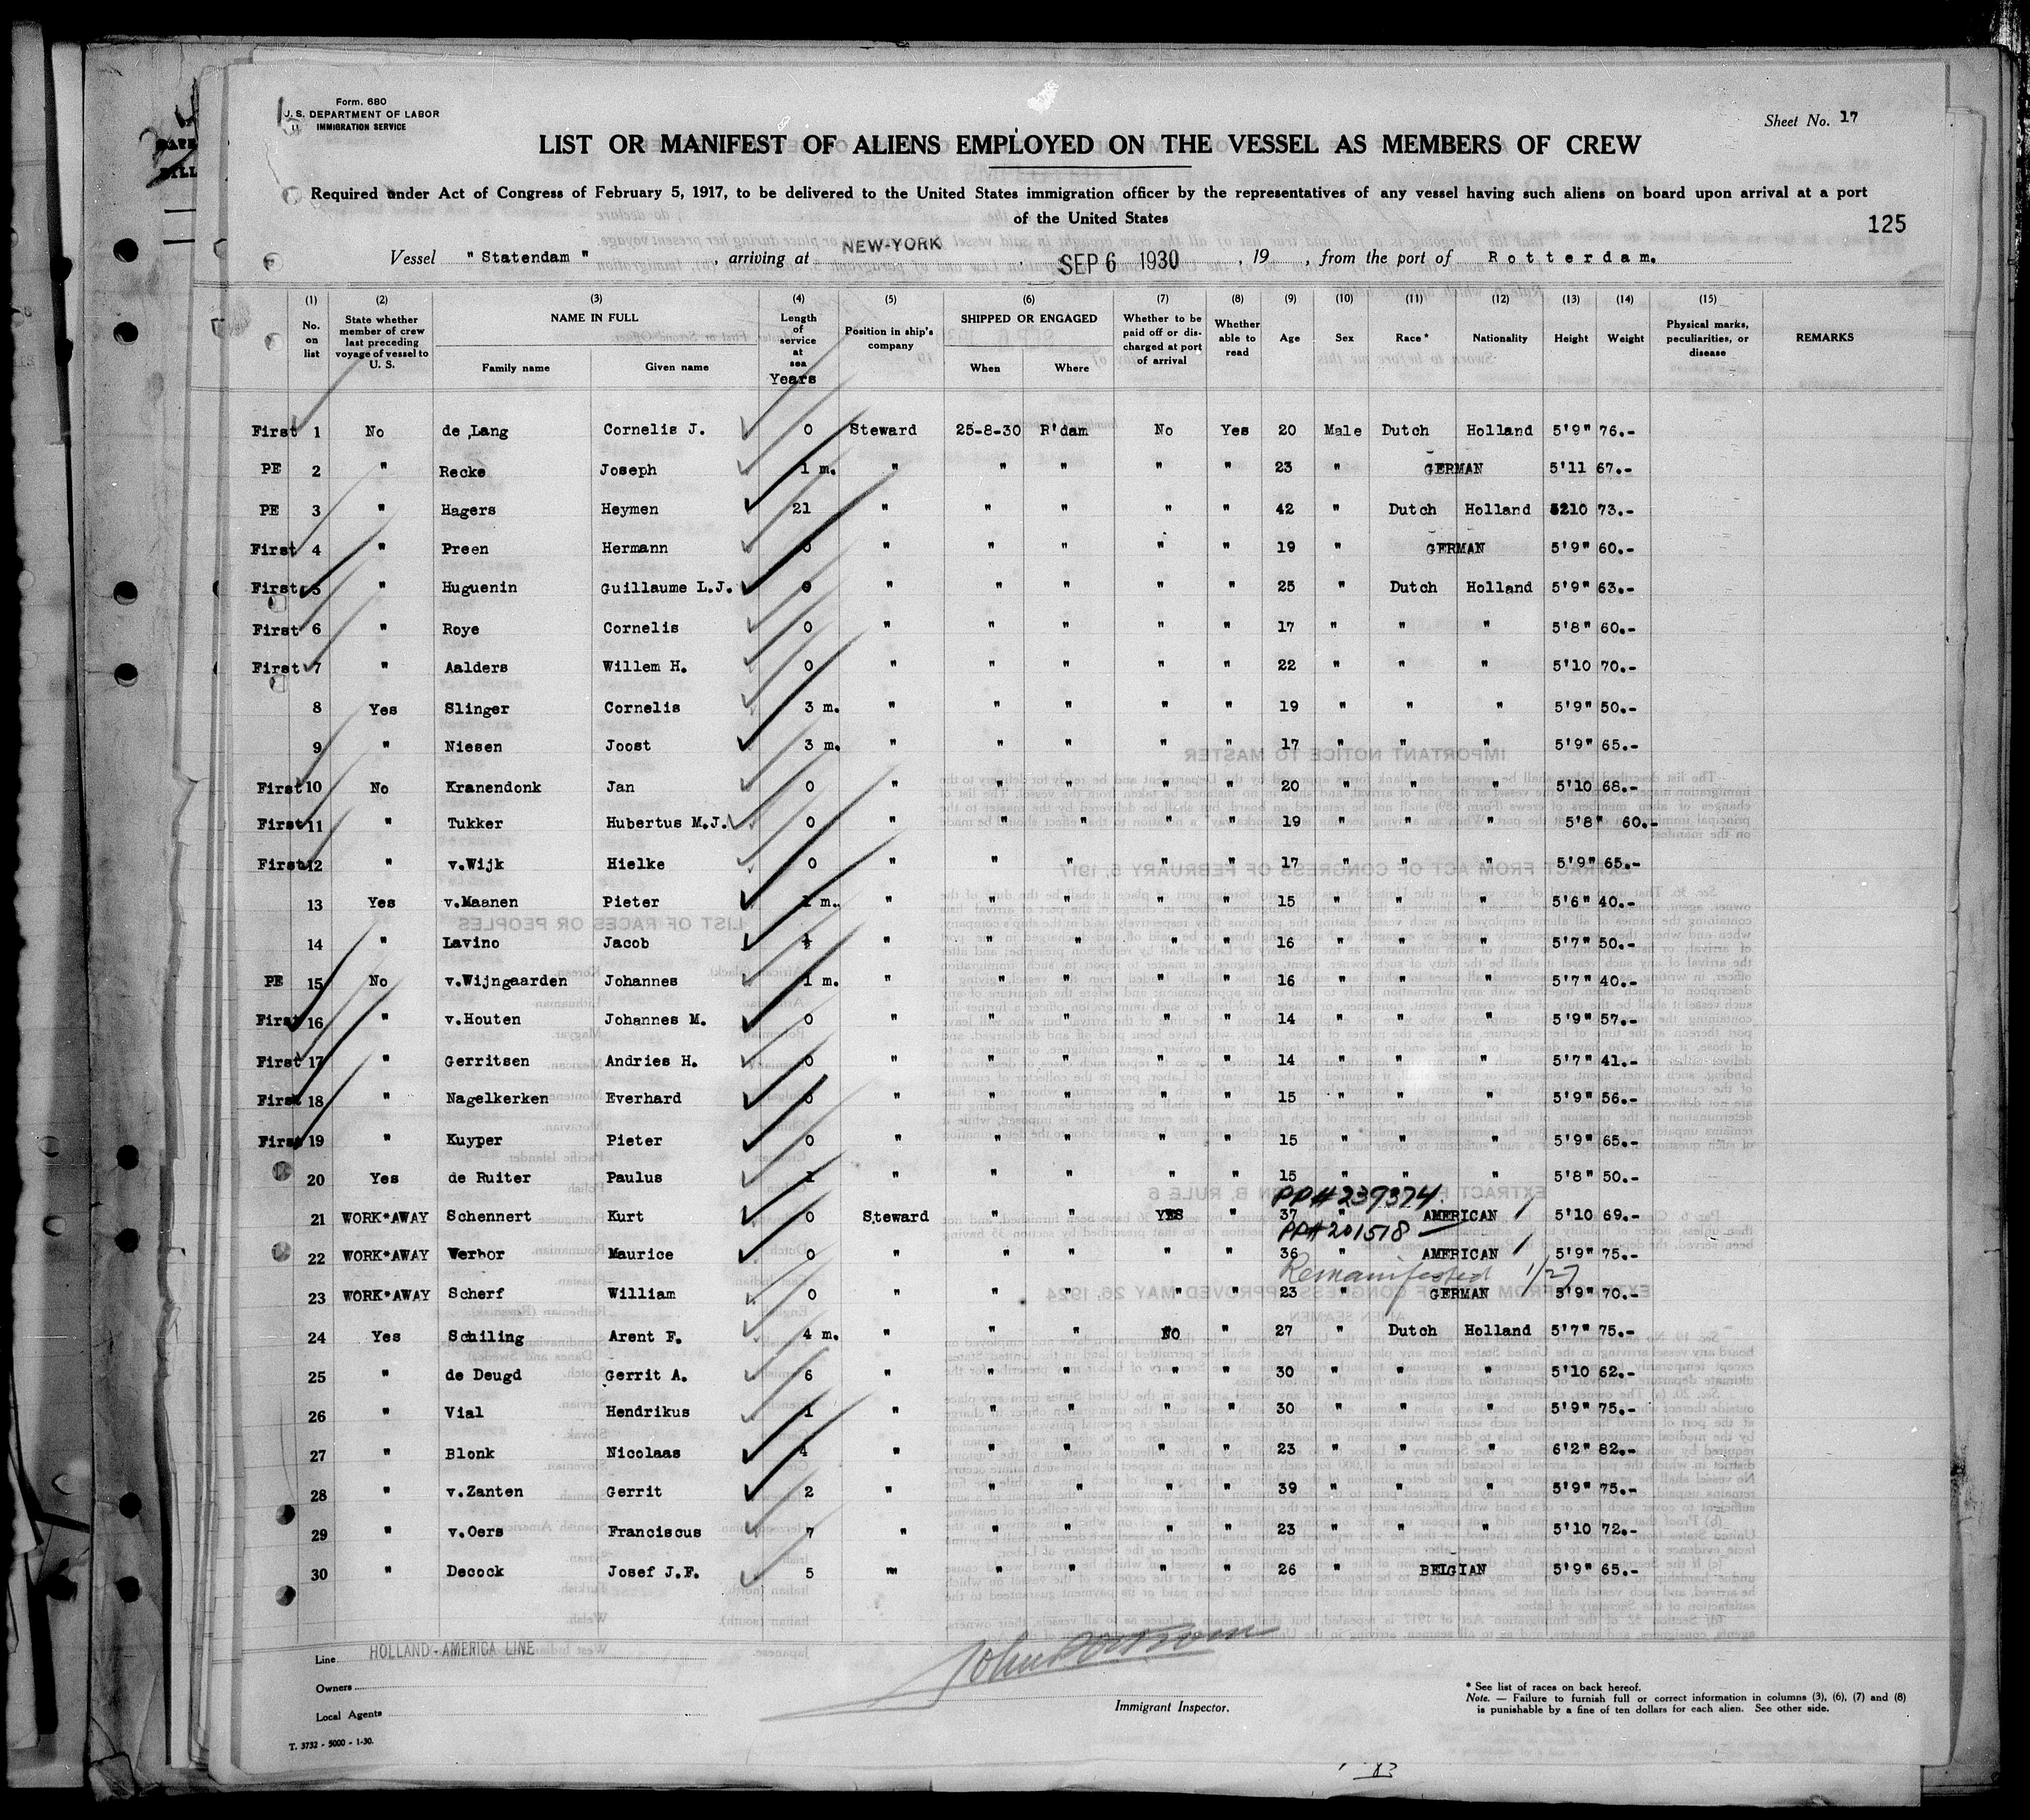 Form. 680
U. S. DEPARTMENT OF LABOR
IMMIGRATION SERVICE
Sheet No. 17
LIST OR MANIFEST OF ALIENS EMPLOYED ON THE VESSEL AS MEMBERS OF CREW
Required under Act of Congress of February 5, 1917, to be delivered to the United States immigration officer by the representatives of any vessel having such aliens on board upon arrival at a port
of the United States
125
Vessel "Statendam", arriving at NEW-YORK SEP 6 1930, 19 , from the port of Rotterdam.
(1) (2) (3) (4) (5) (6) (7) (8) (9) (10) (11) (12) (13) (14) (15)
No. on list State whether member of crew last preceding voyage of vessel to U. S. NAME IN FULL Family name Given name Length of service at sea Years Position in ship's company SHIPPED OR ENGAGED When Where Whether to be paid off or discharged at port of arrival Whether able to read Age Sex Race * Nationality Height Weight Physical marks, peculiarities, or disease REMARKS
First 1 No de Lang Cornelis J. 0 Steward 25-8-30 R'dam No Yes 20 Male Dutch Holland 5'9" 76.-
PE 2 " Recke Joseph 1 m. " " " " " 23 " GERMAN 5'11 67.-
PE 3 " Hagers Heymen 21 " " " " " 42 " Dutch Holland 5210 73.-
First 4 " Preen Hermann 0 " " " " " 19 " GERMAN 5'9" 60.-
First 5 " Huguenin Guillaume L.J. 0 " " " " " 25 " Dutch Holland 5'9" 63.-
First 6 " Roye Cornelis 0 " " " " " 17 " " " 5'8" 60.-
First 7 " Aalders Willem H. 0 " " " " " 22 " " " 5'10 70.-
8 Yes Slinger Cornelis 3 m. " " " " " 19 " " " 5'9" 50.-
9 " Niesen Joost 3 m. " " " " " 17 " " " 5'9" 65.-
First 10 No Kranendonk Jan 0 " " " " " 20 " " " 5'10 68.-
First 11 " Tukker Hubertus M.J. 0 " " " " " 19 " " " 5'8" 60.-
First 12 " v.Wijk Hielke 0 " " " " " 17 " " " 5'9" 65.-
13 Yes v.Maanen Pieter 1 m. " " " " " 15 " " " 5'6" 40.-
14 " Lavino Jacob " " " " " 16 " " " 5'7" 50.-
PE 15 No v.Wijngaarden Johannes 1 m. " " " " " 16 " " " 5'7" 40.-
First 16 " v.Houten Johannes M. 0 " " " " " 14 " " " 5'9" 57.-
First 17 " Gerritsen Andries H. 0 " " " " " 14 " " " 5'7" 41.-
First 18 " Nagelkerken Everhard 0 " " " " " 15 " " " 5'9" 56.-
First 19 " Kuyper Pieter 0 " " " " " 15 " " " 5'9" 65.-
20 Yes de Ruiter Paulus 1 " " " " " 15 " " " 5'8" 50.-
PP# 239374
21 WORK*AWAY Schennert Kurt 0 Steward " " YES " 37 " AMERICAN 5'10 69.-
PP# 201518
22 WORK*AWAY Werbor Maurice 0 " " " " " 36 " AMERICAN 5'9" 75.-
Remanifested 1/27
23 WORK*AWAY Scherf William 0 " " " " " 23 " GERMAN 5'9" 70.-
24 Yes Schiling Arent F. 4 m. " " " NO " 27 " Dutch Holland 5'7" 75.-
25 " de Deugd Gerrit A. 6 " " " " " 30 " " " 5'10 62.-
26 " Vial Hendrikus 1 " " " " " 30 " " " 5'9" 75.-
27 " Blonk Nicolaas 4 " " " " " 23 " " " 6'2" 82.-
28 " v.Zanten Gerrit 2 " " " " " 39 " " " 5'9" 75.-
29 " v.Oers Franciscus 7 " " " " " 23 " " " 5'10 72.-
30 " Decock Josef J.F. 5 " " " " " 26 " BELGIAN 5'9" 65.-
Line HOLLAND-AMERICA LINE
Owners
Local Agents
Immigrant Inspector.
* See list of races on back hereof.
Note. — Failure to furnish full or correct information in columns (3), (6), (7) and (8)
is punishable by a fine of ten dollars for each alien. See other side.
T. 3732 - 5000 - 1-30.